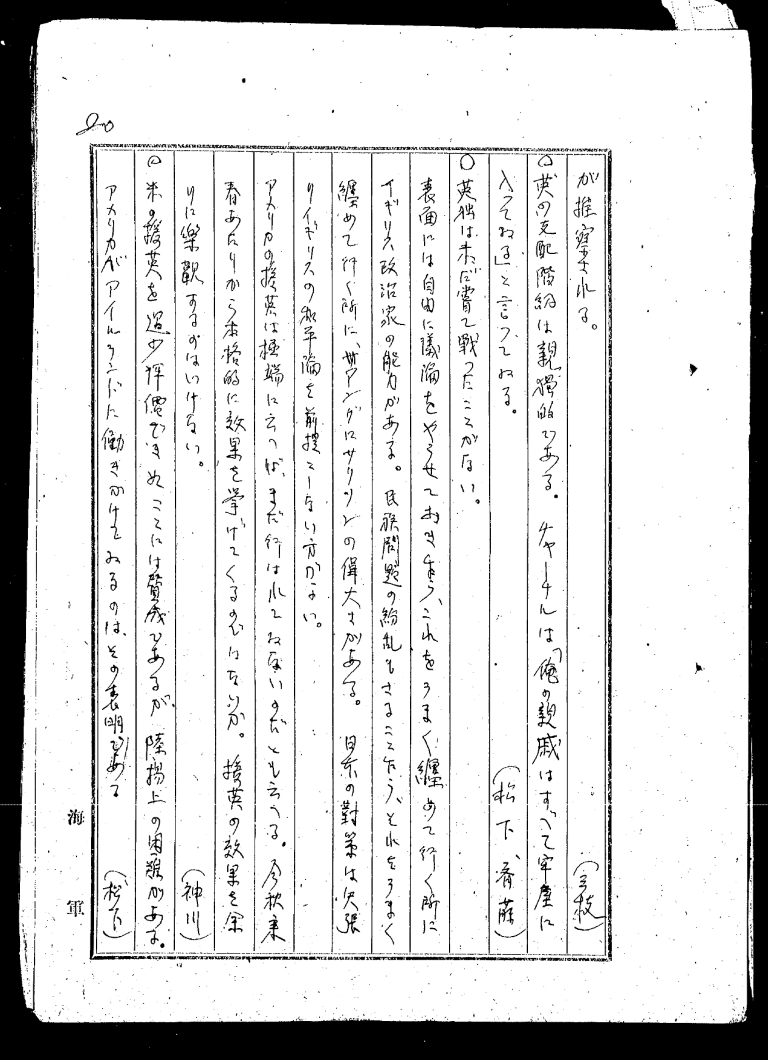 20
が推察される。　(三枝)
○英の支配階級は親獨的である。チャーチルは「俺の親戚はすべて牢屋に
入つてゐる」と言つてゐる。　(松下、斉藤)
○英独は未だ嘗て戦つたことがない。
表面には自由に議論をやらせておき乍ら、これをうまく纏めて行く所に
イギリス政治家の能力がある。民族問題の紛乱もさることだらう、それをうまく
纏めて行く所に、アングロサクソンの偉大さがある。日本の對策は矢張
りイギリスの和平論を前提としない方がよい。
アメリカの援英は極端に云へば、まだ行はれてゐないのだとも云へる。今秋来
春あたりから本格的に效果を挙げてくるのではないか。援英の效果を余
りに樂觀するのはいけない。　(神川)
○米の援英を過少評價できぬことには賛成であるが、陸揚上の困難がある。
アメリカがアイルランドに働きかけてゐるのは、その表明である　(松下)
海軍